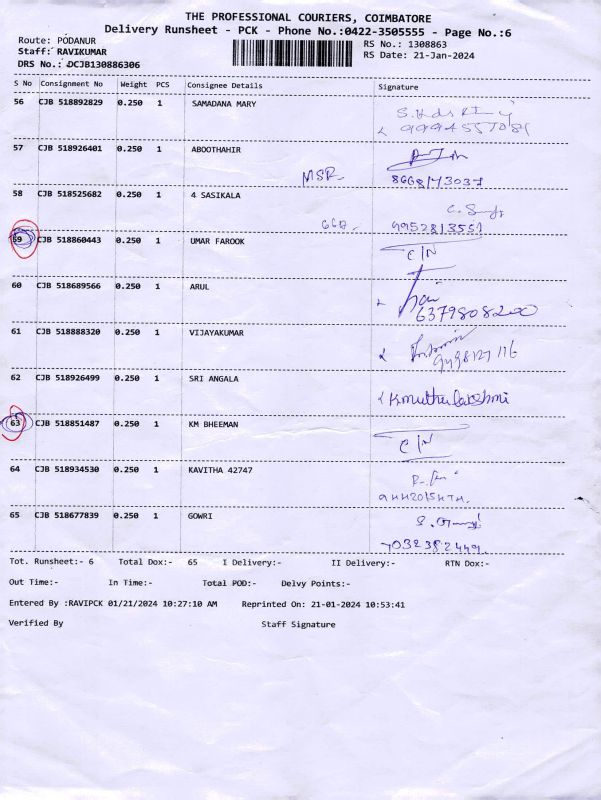 THE PROFESSIONAL COURIERS, COIMBATORE
Delivery Runsheet - PCK - Phone No.:0422-3505555 - Page No.:6
Route: PODANUR
Staff: RAVIKUMAR
DRS No.: DCJB130886306
RS No.: 1308863
RS Date: 21-Jan-2024
S No Consignment No Weight PCS Consignee Details Signature
56 CJB 518892829 0.250 1 SAMADANA MARY
57 CJB 518926401 0.250 1 ABOOTHAHIR
MSR 8668173037
58 CJB 518525682 0.250 1 4 SASIKALA
9952813551
59 CJB 518860443 0.250 1 UMAR FAROOK C/N
60 CJB 518689566 0.250 1 ARUL
6379808200
61 CJB 518888320 0.250 1 VIJAYAKUMAR
62 CJB 518926499 0.250 1 SRI ANGALA K.muthulakshmi
63 CJB 518851487 0.250 1 KM BHEEMAN C/N
64 CJB 518934530 0.250 1 KAVITHA 42747
65 CJB 518677839 0.250 1 GOWRI
7032382449
Tot. Runsheet:- 6 Total Dox:- 65 I Delivery:- II Delivery:- RTN Dox:-
Out Time:- In Time:- Total POD:- Delvy Points:-
Entered By :RAVIPCK 01/21/2024 10:27:10 AM Reprinted On: 21-01-2024 10:53:41
Verified By Staff Signature